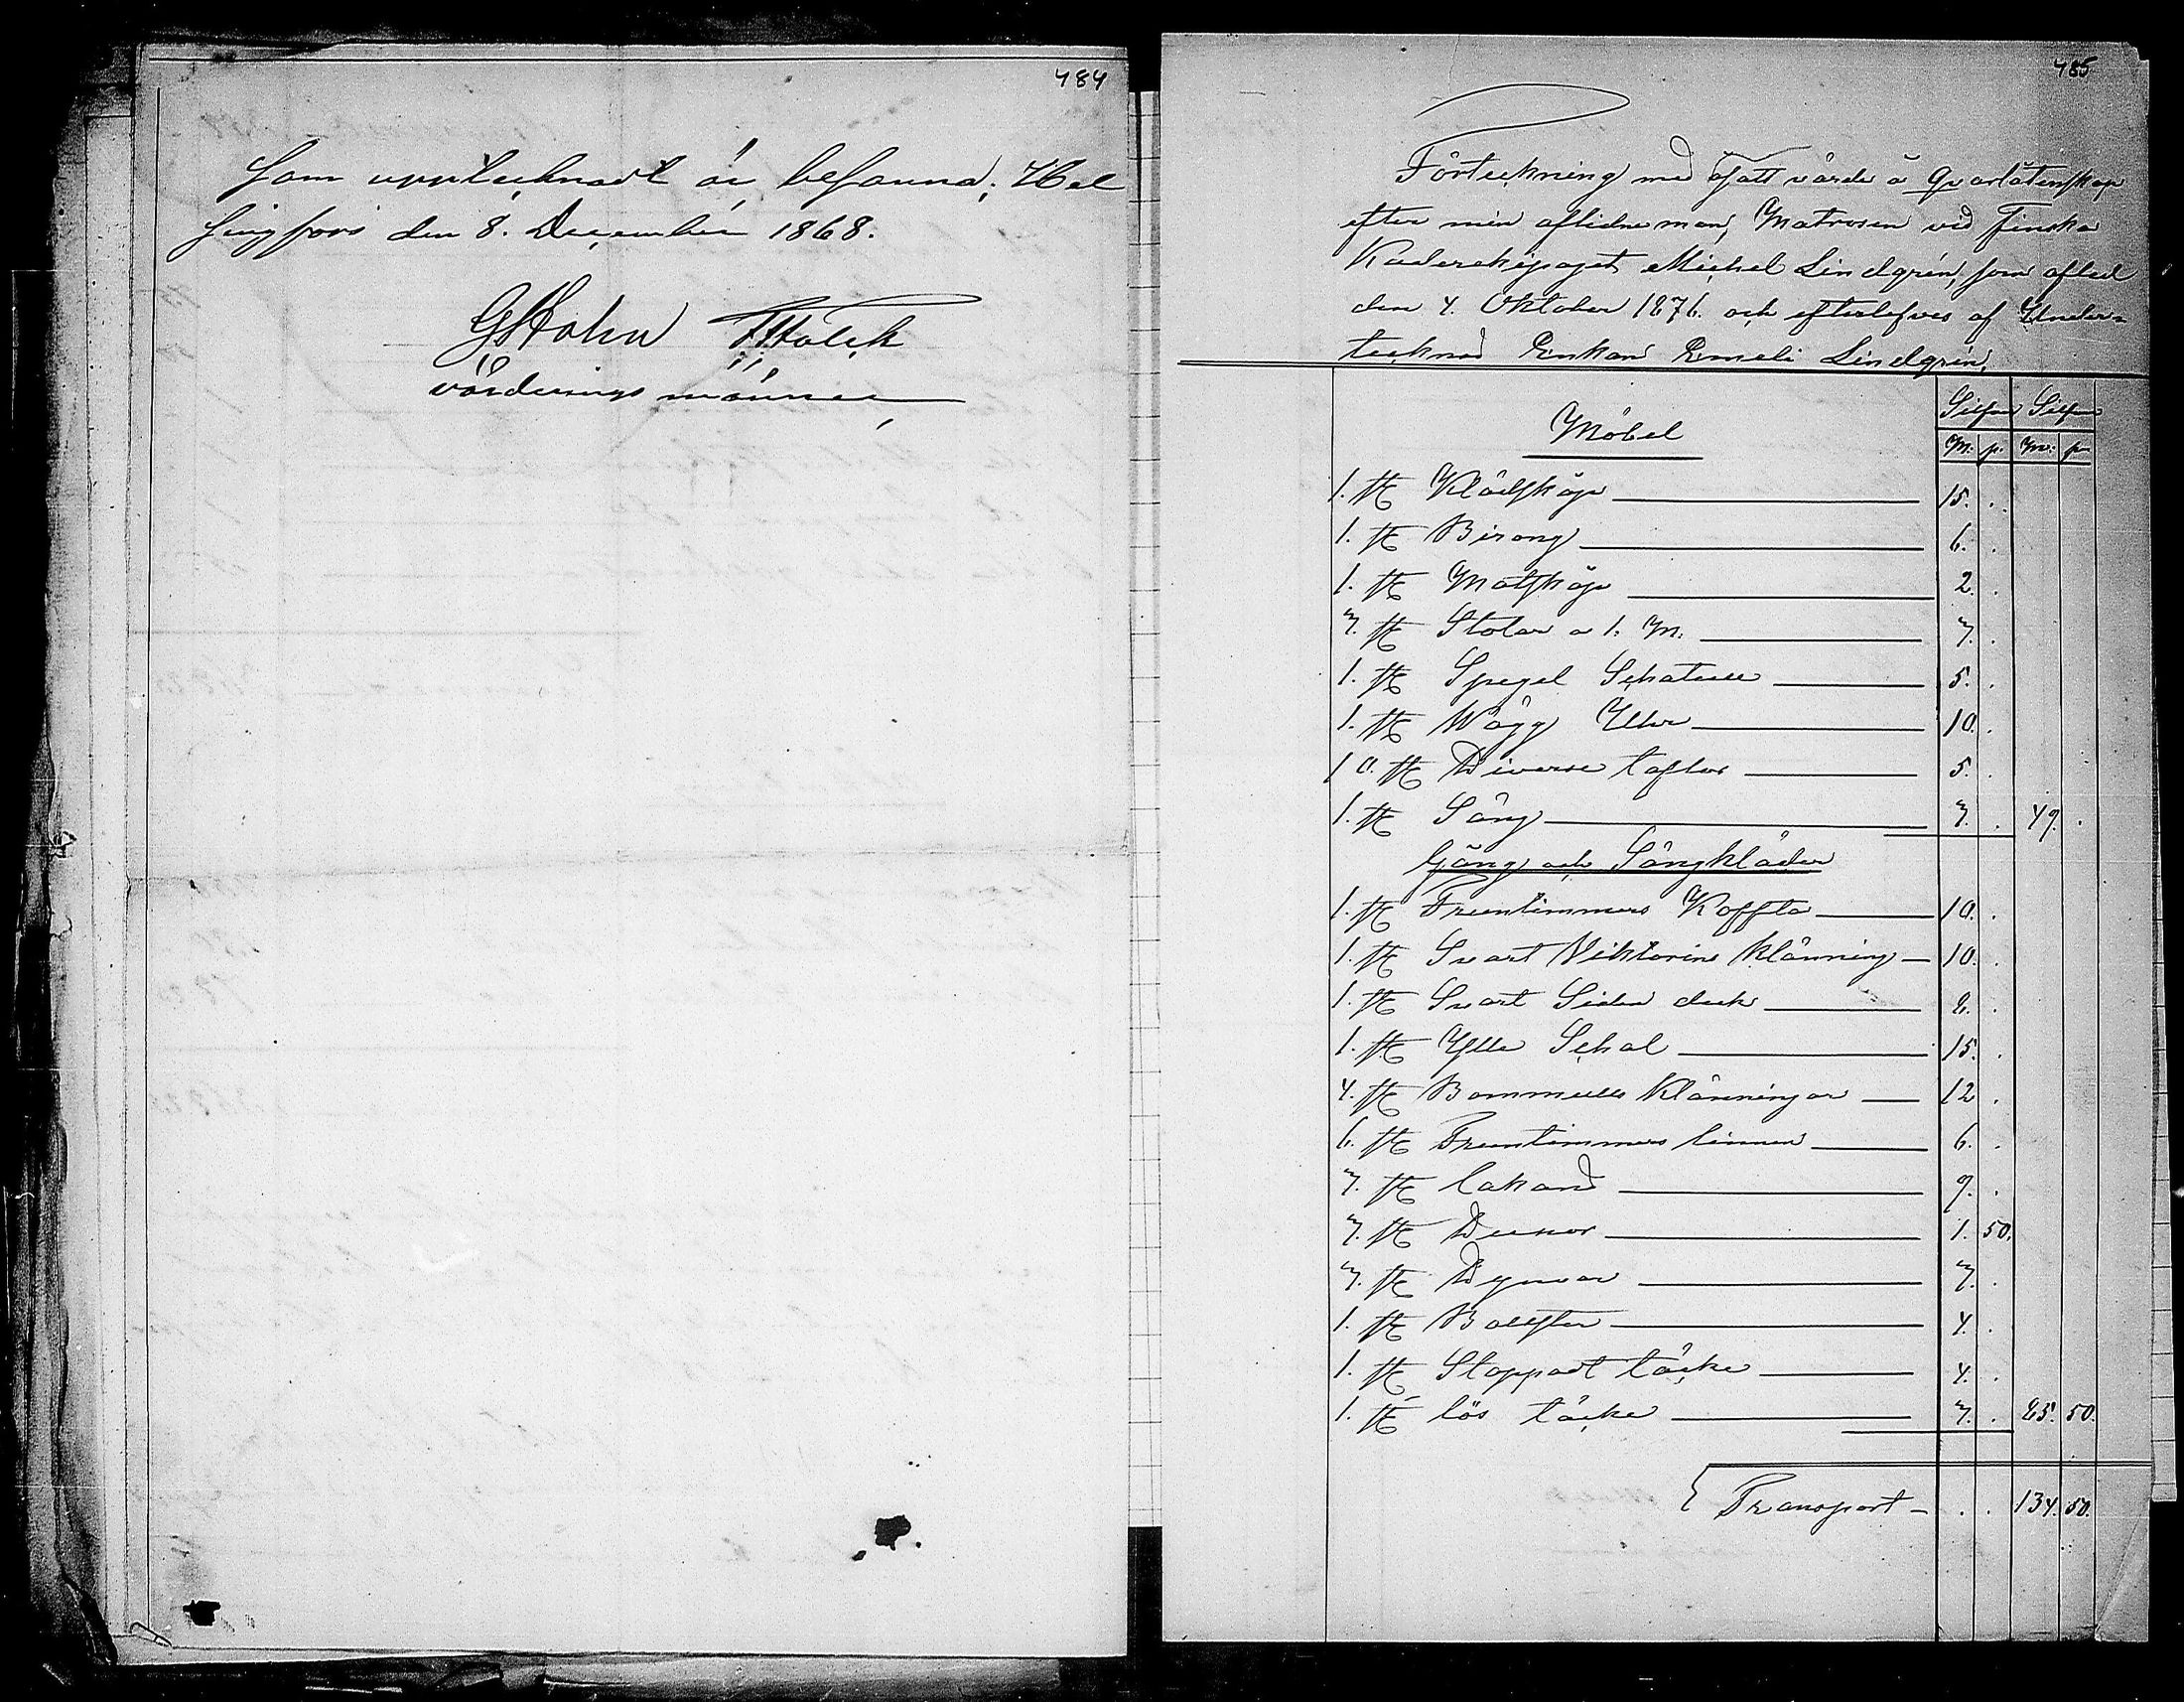 484
Som upptecknadt är, befanns; Hel
singfors den 8. December 1868.
värderings männer
485
Förteckning med åsatt värde å Qvarlåtenskap
efter min aflidne man, Matrosen vid Finska
Kaderekipaget Michel Lindgrén, som afled
den 4. Oktober 1876. och efterlefves af Under=
tecknad Enkan Emeli Lindgrén.
Silfver Silfver
Möbel M. p. M. p.
1. st Klädskåp 15. .
1. st Birong 6. .
1. st Matskåp 2. .
3. st Stolar a 1. M. 3. .
1. st Spegel Schatull 5. .
1. st Wägg Uhr 10. .
10. st Diverse taflor 5. .
1. st Säng 3. . 49. .
Gång och Sängkläder
1. st Fruntimmers Koffta 10. .
1. st Svart Viktorins Klänning 10. .
1. st Svart Siden duk 8. .
1. st Ylle Schal 15. .
4. st Bommulls Klänningar 12 .
6. st Fruntimmers linnen 6. .
3. st lakand 9. .
3. st Dukar 1. 50.
3. st Dynor 3. .
1. st Bollster 4. .
1. st Stoppadt täcke 4. .
1. st lös täcke 3. . 85. 50.
Transport . . 134. 50.